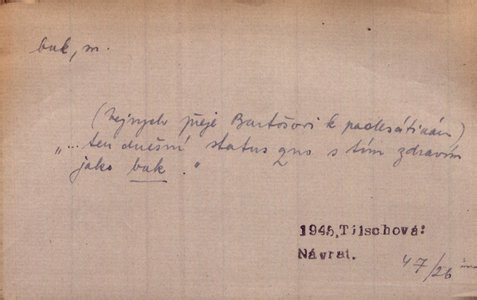 buk, m.
(Vejrych přeje Bartošovi k padesátinám)
„... ten dnešní status quo s tím zdravím
jako buk."
1945, Tilschová:
Návrat.
47/26